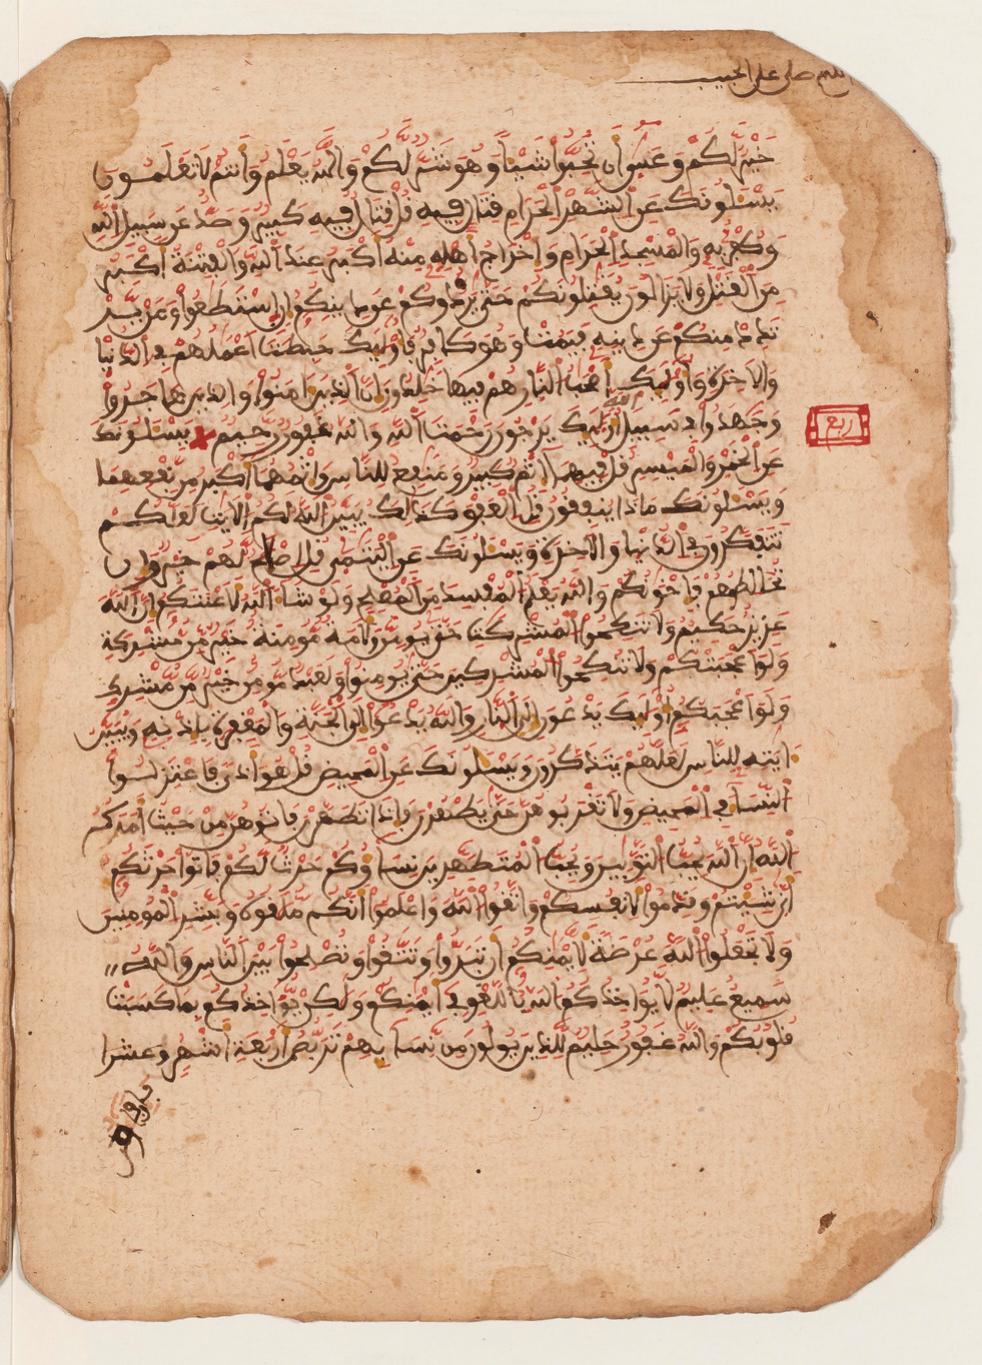 اللهم صل على الحبيب
خير لكم وعسى أن تحبوا شيئا وهو شر لكم والله يعلم وأنتم لا تعلمون
يسئلونك عن الشهر الحرام قتال فيه قل قتال فيه كبير وصد عن سبيل الله
وكفر به والمسجد الحرام وإخراج أهله منه أكبر عند الله والفتنة أكبر
من القتل ولا يزالون يقتلونكم حتى يردوكم عن دينكم إن استطعوا ومن ير
تدد منكم عن دينه فيمت وهو كافر فأولئك حبطت أعملهم في الدنيا
والاخرة وأولئك أصحب النار هم فيها خلدون إن الذين ءامنوا والذين هاجروا
وجهدوا في سبيل الله أولئك يرجون رحمت الله والله غفور رحيم يسئلونك
ربع
عن الخمر والميسر قل فيهما إثم كبير ومنفع للناس وإثمهما أكبر من نفعهما
ويسئلونك ماذا ينفقون قل العفو كذلك يبين الله لكم الأيت لعلكم
تتفكرون في الدنيا والاخرة ويسئلونك عن اليتمى قل إصلح لهم خير وإن
تخالطوهم فإخونكم والله يعلم المفسد من المصلح ولو شاء الله لأعنتكم إن الله
عزيز حكيم ولا تنكحوا المشركت حتى يومن ولأمة مومنة خير من مشركة
ولو أعجبتكم ولا تنكحوا المشركين حتى يومنوا ولعبد مومن خير من مشرك
ولو أعجبكم أولئك يدعون إلى النار والله يدعوا إلى الجنة والمغفرة بإذنه ويبين
ءايته للناس لعلهم يتذكرون ويسئلونك عن المحيض قل هو أذى فاعتزلوا
النساء في المحيض ولا تقربوهن حتى يطهرن فإذا تطهرن فاتوهن من حيث أمركم
الله إن الله يحب التوبين ويحب المتطهرين نساؤكم حرث لكم فاتوا حرثكم
أنى شئتم وقدموا لأنفسكم واتقوا الله واعلموا أنكم ملقوه وبشر المومنين
ولا تجعلوا الله عرضة لأيمنكم أن تبروا وتتقوا وتصلحوا بين الناس والله
سميع عليم لا يؤاخذكم الله باللغو في أيمنكم ولكن يؤاخذكم بما كسبت
قلوبكم والله غفور حليم للذين يولون من نسائهم تربص أربعة أشهر وعشرا